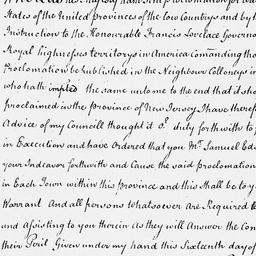 States of the United provinces of the low Countrys and by th
Instruction to the Honourable Francis Lovelace Governo
Royal highnesses territorys in America Comanding tha
Proclomation be published in the Neighbour Colloneys in
who hath impted the same unto me to the end that it sho
proclaimed in the province of New Jersey I have theref
Advice of my Councill thought it or duty forthwith to p
in Execution and have Ordered that you Mr Samuel Ed
your Indeavor forthwith and Cause the said proclomation
in Each Town within this province and this Shall be to y
Warrant And all persons whatsoever are Required t
and assisting to you therein As they will Answer the Con
their Peril Given under my hand this Sixteenth day of